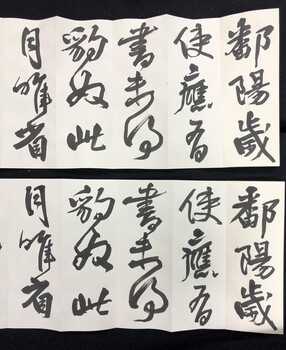 鄱陽歲
使應有
書未得
豹奴此
月唯省
鄱陽歲
使應有
書未得
豹奴此
月唯省